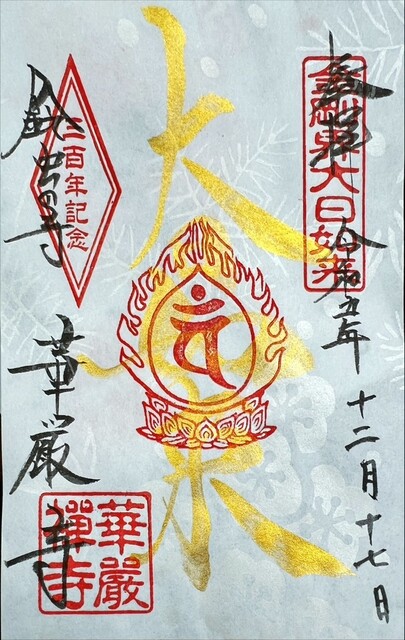 奉拝
金剛界大日如来
令和五年
十二月十七日
大
三百年記念
鈴虫の寺
華厳寺
華嚴禪寺